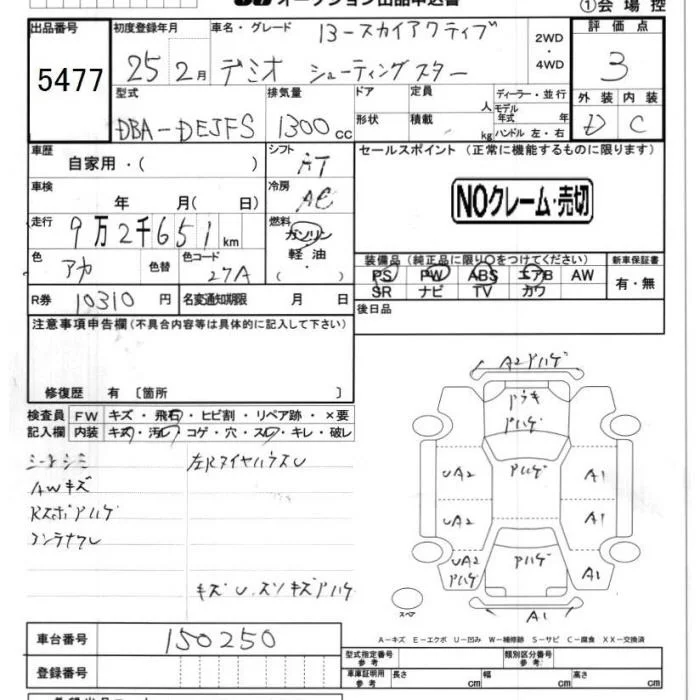 オークション出品申込書
①会場控
出品番号 初度登録年月 車名・グレード 13-スカイアクティブ 2WD・4WD 評価点
5477 25 2月 デミオ シューティングスター 3
型式 排気量 ドア 定員 人 ディーラー・並行 外装 内装
DBA-DEJFS 1300cc 形状 積載 kg モデル年式 年 ハンドル 左・右 D C
車歴 自家用・( ) シフト AT セールスポイント (正常に機能するものに限ります)
車検 年 月( 日) 冷房 AC NOクレーム・売切
走行 9万2千651km 燃料 ガソリン 軽油 ・( )
色 アカ 色替 色コード 27A
装備品(純正品に限り○をつけてください) 新車保証書
PS PW ABS エアB AW 有・無
SR ナビ TV カワ
R券 10310円 名変通知期限 月 日 後日品
注意事項申告欄(不具合内容等は具体的に記入して下さい)
修復歴 有 〔箇所 〕
検査員 FW キズ・飛石・ヒビ割・リペア跡・×要
記入欄 内装 キズ・汚レ・コゲ・穴・スレ・キレ・破レ
シートシミ 左RタイヤハウスU
AWキズ
RスポAハゲ
コンテナスレ
キズU.スソキズAハゲ
A2 Aハゲ
Aハゲ
UA2 Aハゲ A1
UA2 A1
UA2 Aハゲ Aハゲ A1
スペア A1
A-キズ E-エクボ U-凹み W-補修跡 S-サビ C-腐食 XX-交換済
車台番号 150250
型式指定番号 参考 類別区分番号 参考
登録番号 車庫証明用 参考 長さ cm 幅 cm 高さ cm